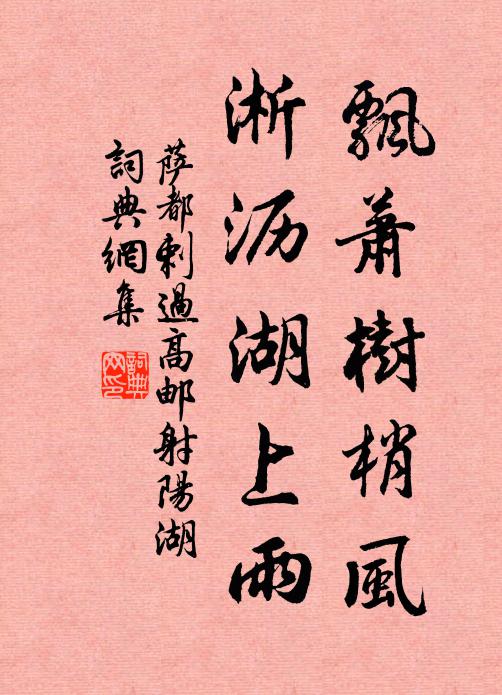 飄蕭樹梢風
淅沥湖上雨
萨都剌過高邮射陽湖
詞典網集
詞典網印